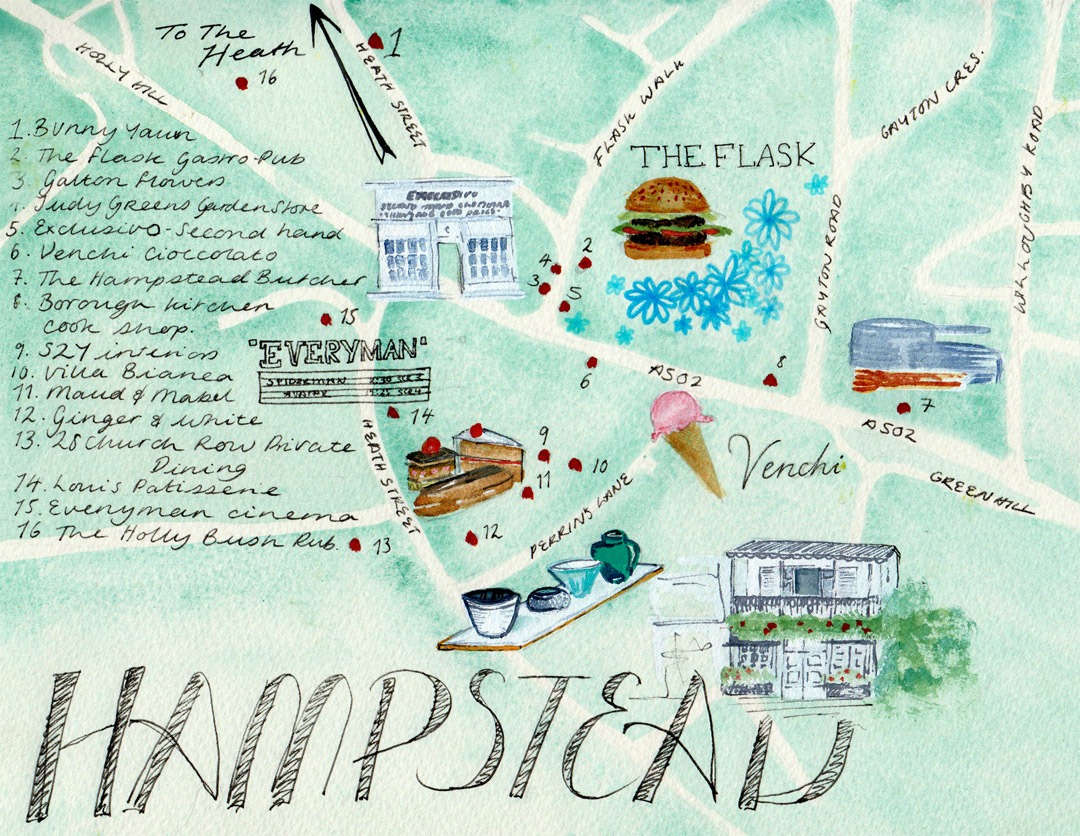 To The
Heath
HOLLY HILL
16
1
HEATH STREET
FLASK WALK
GAYTON CRES.
WILLOUGHBY ROAD
GAYTON ROAD
THE FLASK
1. Bunny Yawn
2. The Flask Gastro-Pub
3. Galton Flowers
4. Judy Greens Garden Store
5. Exclusivo-Second hand
6. Venchi Cioccolato
7. The Hampstead Butcher
8. Borough kitchen
cook shop.
9. S2Y interiors
10. Villa Bianca
11. Maud & Mabel
12. Ginger & White
13. 28 Church Row Private
Dining
14. Louis Patisserie
15. Everyman cinema
16 The Holly Bush Pub.
EXCLUSIVO
2
4
3
5
15
"EVERYMAN"
SPIDERMAN 2:30 SCR 2
AVATAR
6
A502
8
7
A502
GREENHILL
14
HEATH STREET
9
10
11
12
13
PERRINS LANE
Venchi
HAMPSTEAD